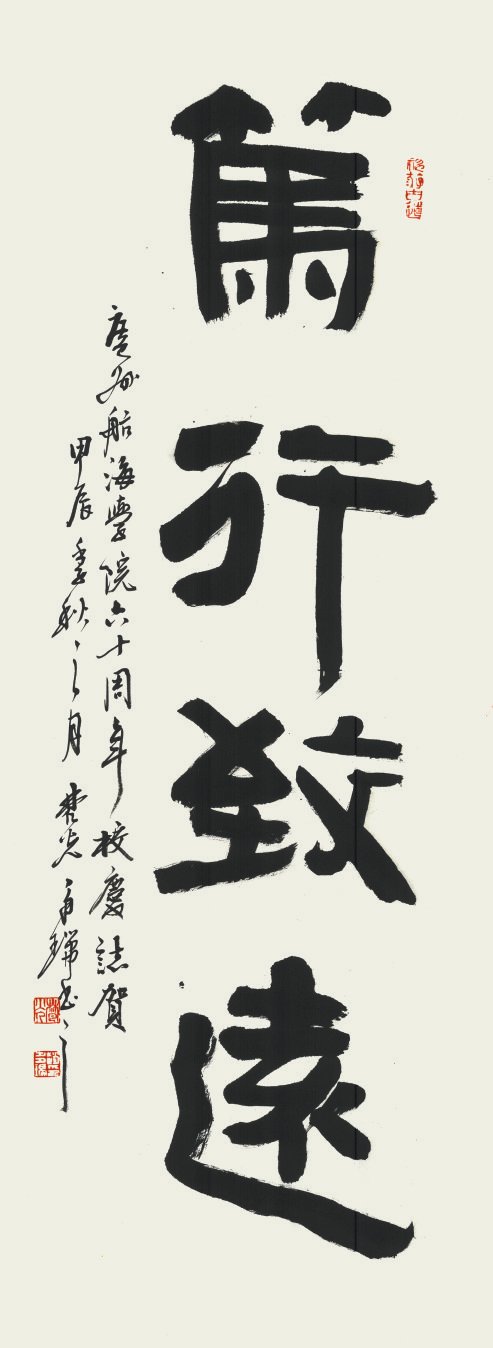 篤行致遠
廣州航海學院六十周年校慶誌賀
甲辰季秋之月 瑞書之